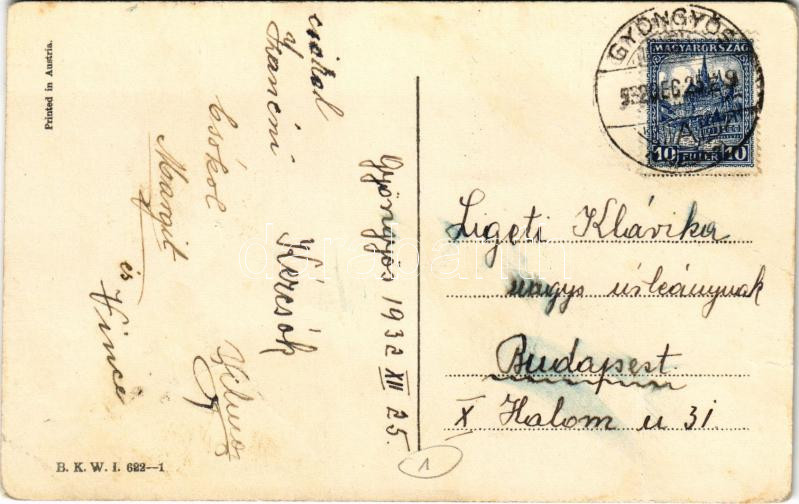 Printed in Austria.
csókol
Francini
Csókol
Margit
és
Vince
Gyöngyös 1932 XII 25.
B. K. W. I. 622—1
1
GYÖNGYÖS
932 DEC 25
A
MAGYARORSZÁG
10 FILLÉR 10
Ligeti Klárika
nagys úrleánynak
Budapest
X Halom u 31.
darabanth